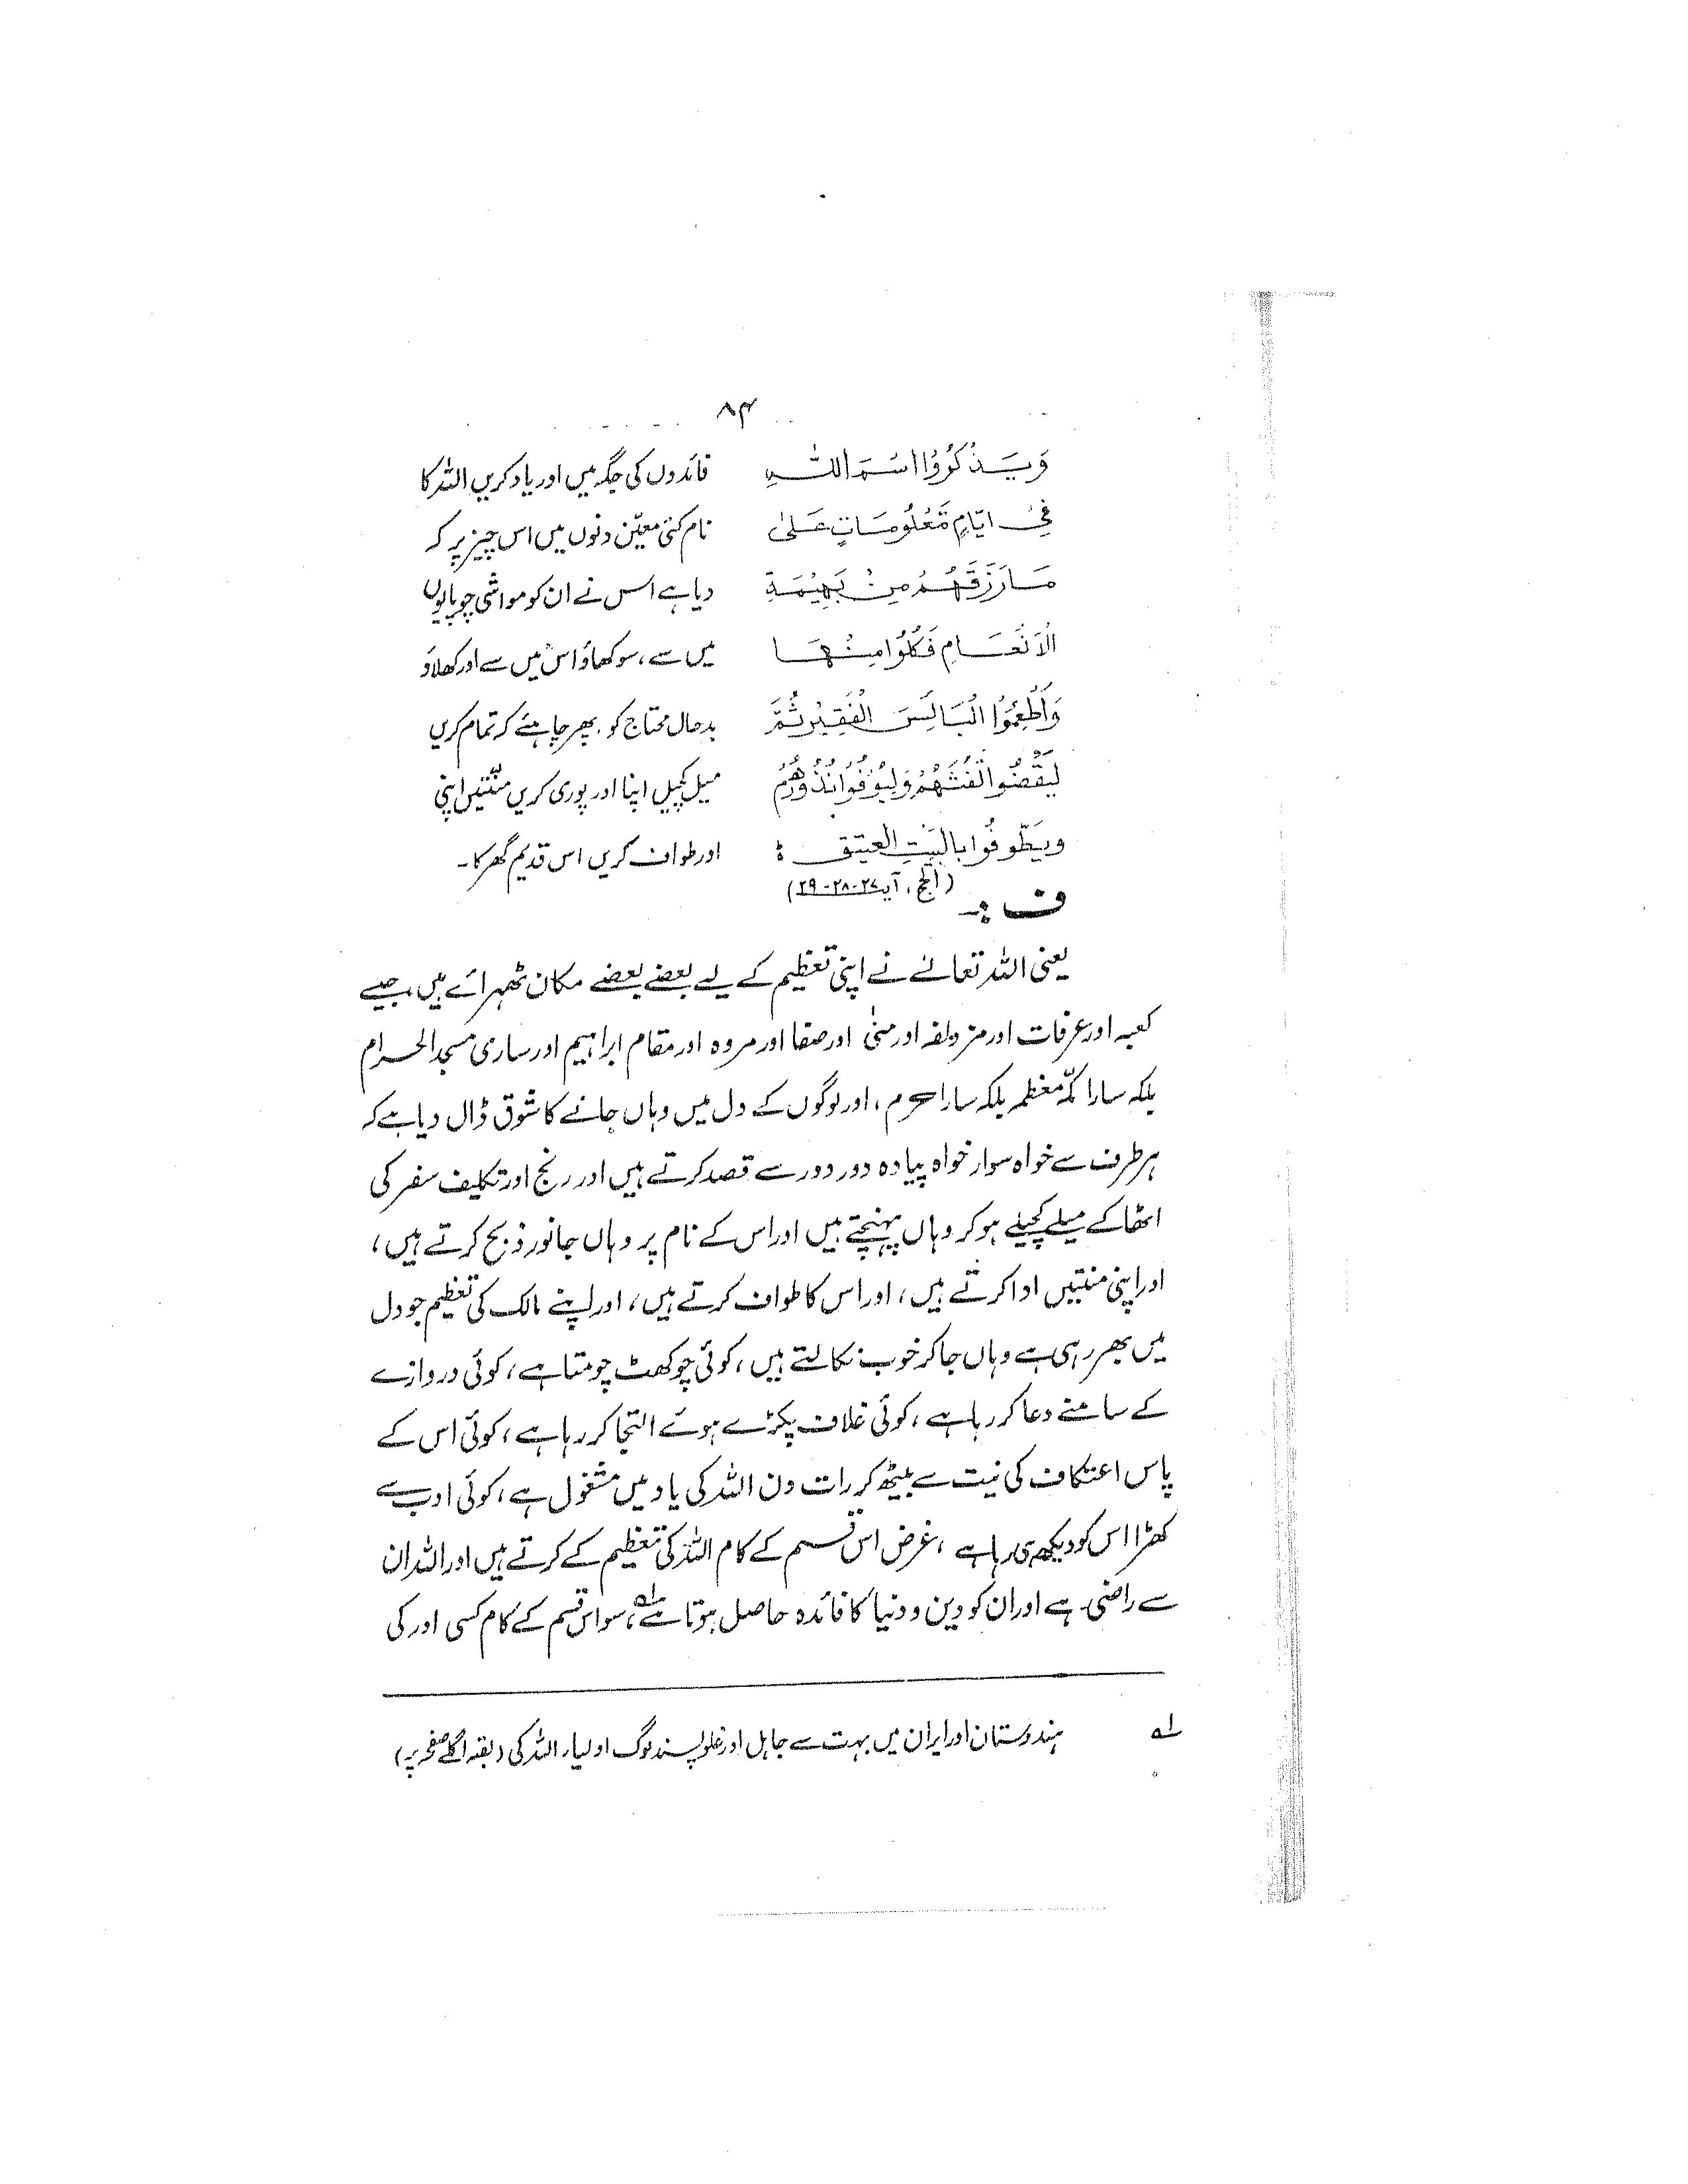 ۸۴
وَيَذْكُرُوا اسْمَ اللهِ
فِيْ اَيَّامٍ مَّعْلُوْمَاتٍ عَلٰى
مَا رَزَقَهُمْ مِنْ بَهِيْمَةِ
الْاَنْعَامِ فَكُلُوْا مِنْهَا
وَاَطْعِمُوْا الْبَائِسَ الْفَقِيْرَ ثُمَّ
لْيَقْضُوْا تَفَثَهُمْ وَلْيُوْفُوْا نُذُوْرَهُمْ
وَيَطَّوَّفُوْا بِالْبَيْتِ الْعَتِيْقِ :
(الحج، آیہ ۲۷-۲۸-۲۹)
فائدوں کی جگہ میں اور یاد کریں اللہ کا
نام کئی معیّن دنوں میں اس چیز پر کہ
دیا ہے اس نے ان کو مواشی چوپایوں
میں سے، سو کھاؤ اس میں سے اور کھلاؤ
بدحال محتاج کو۔ پھر چاہئے کہ تمام کریں
میل کچیل اپنا اور پوری کریں منّتیں اپنی
اور طواف کریں اس قدیم گھر کا۔
ف :-
یعنی اللہ تعالےٰ نے اپنی تعظیم کے لیے بعضے بعضے مکان ٹھہرائے ہیں، جیسے
کعبہ اور عرفات اور مزدلفہ اور منیٰ اور صفا اور مروہ اور مقام ابراہیم اور ساری مسجد الحرام
بلکہ سارا مکّہ معظمہ بلکہ سارا حرم، اور لوگوں کے دل میں وہاں جانے کا شوق ڈال دیا ہے کہ
ہر طرف سے خواہ سوار خواہ پیادہ دور دور سے قصد کرتے ہیں اور رنج اور تکلیف سفر کی
اٹھا کے میلے کچیلے ہو کر وہاں پہنچتے ہیں اور اس کے نام پر وہاں جانور ذبح کرتے ہیں،
اور اپنی منتیں ادا کرتے ہیں، اور اس کا طواف کرتے ہیں، اور اپنے مالک کی تعظیم جو دل
میں بھر رہی ہے وہاں جا کر خوب نکالتے ہیں، کوئی چوکھٹ چومتا ہے، کوئی دروازے
کے سامنے دعا کر رہا ہے، کوئی غلاف پکڑے ہوئے التجا کر رہا ہے، کوئی اس کے
پاس اعتکاف کی نیت سے بیٹھ کر رات دن اللہ کی یاد میں مشغول ہے، کوئی ادب سے
کھڑا اس کو دیکھ ہی رہا ہے، غرض اس قسم کے کام اللہ کی تعظیم کے کرتے ہیں اور اللہ ان
سے راضی ہے اور ان کو دین و دنیا کا فائدہ حاصل ہوتا ہے ؎۱، سو اس قسم کے کام کسی اور کی
؎۱ ہندوستان اور ایران میں بہت سے جاہل اور غلو پسند لوگ اولیاء اللہ کی (بقیہ اگلے صفحہ پر)